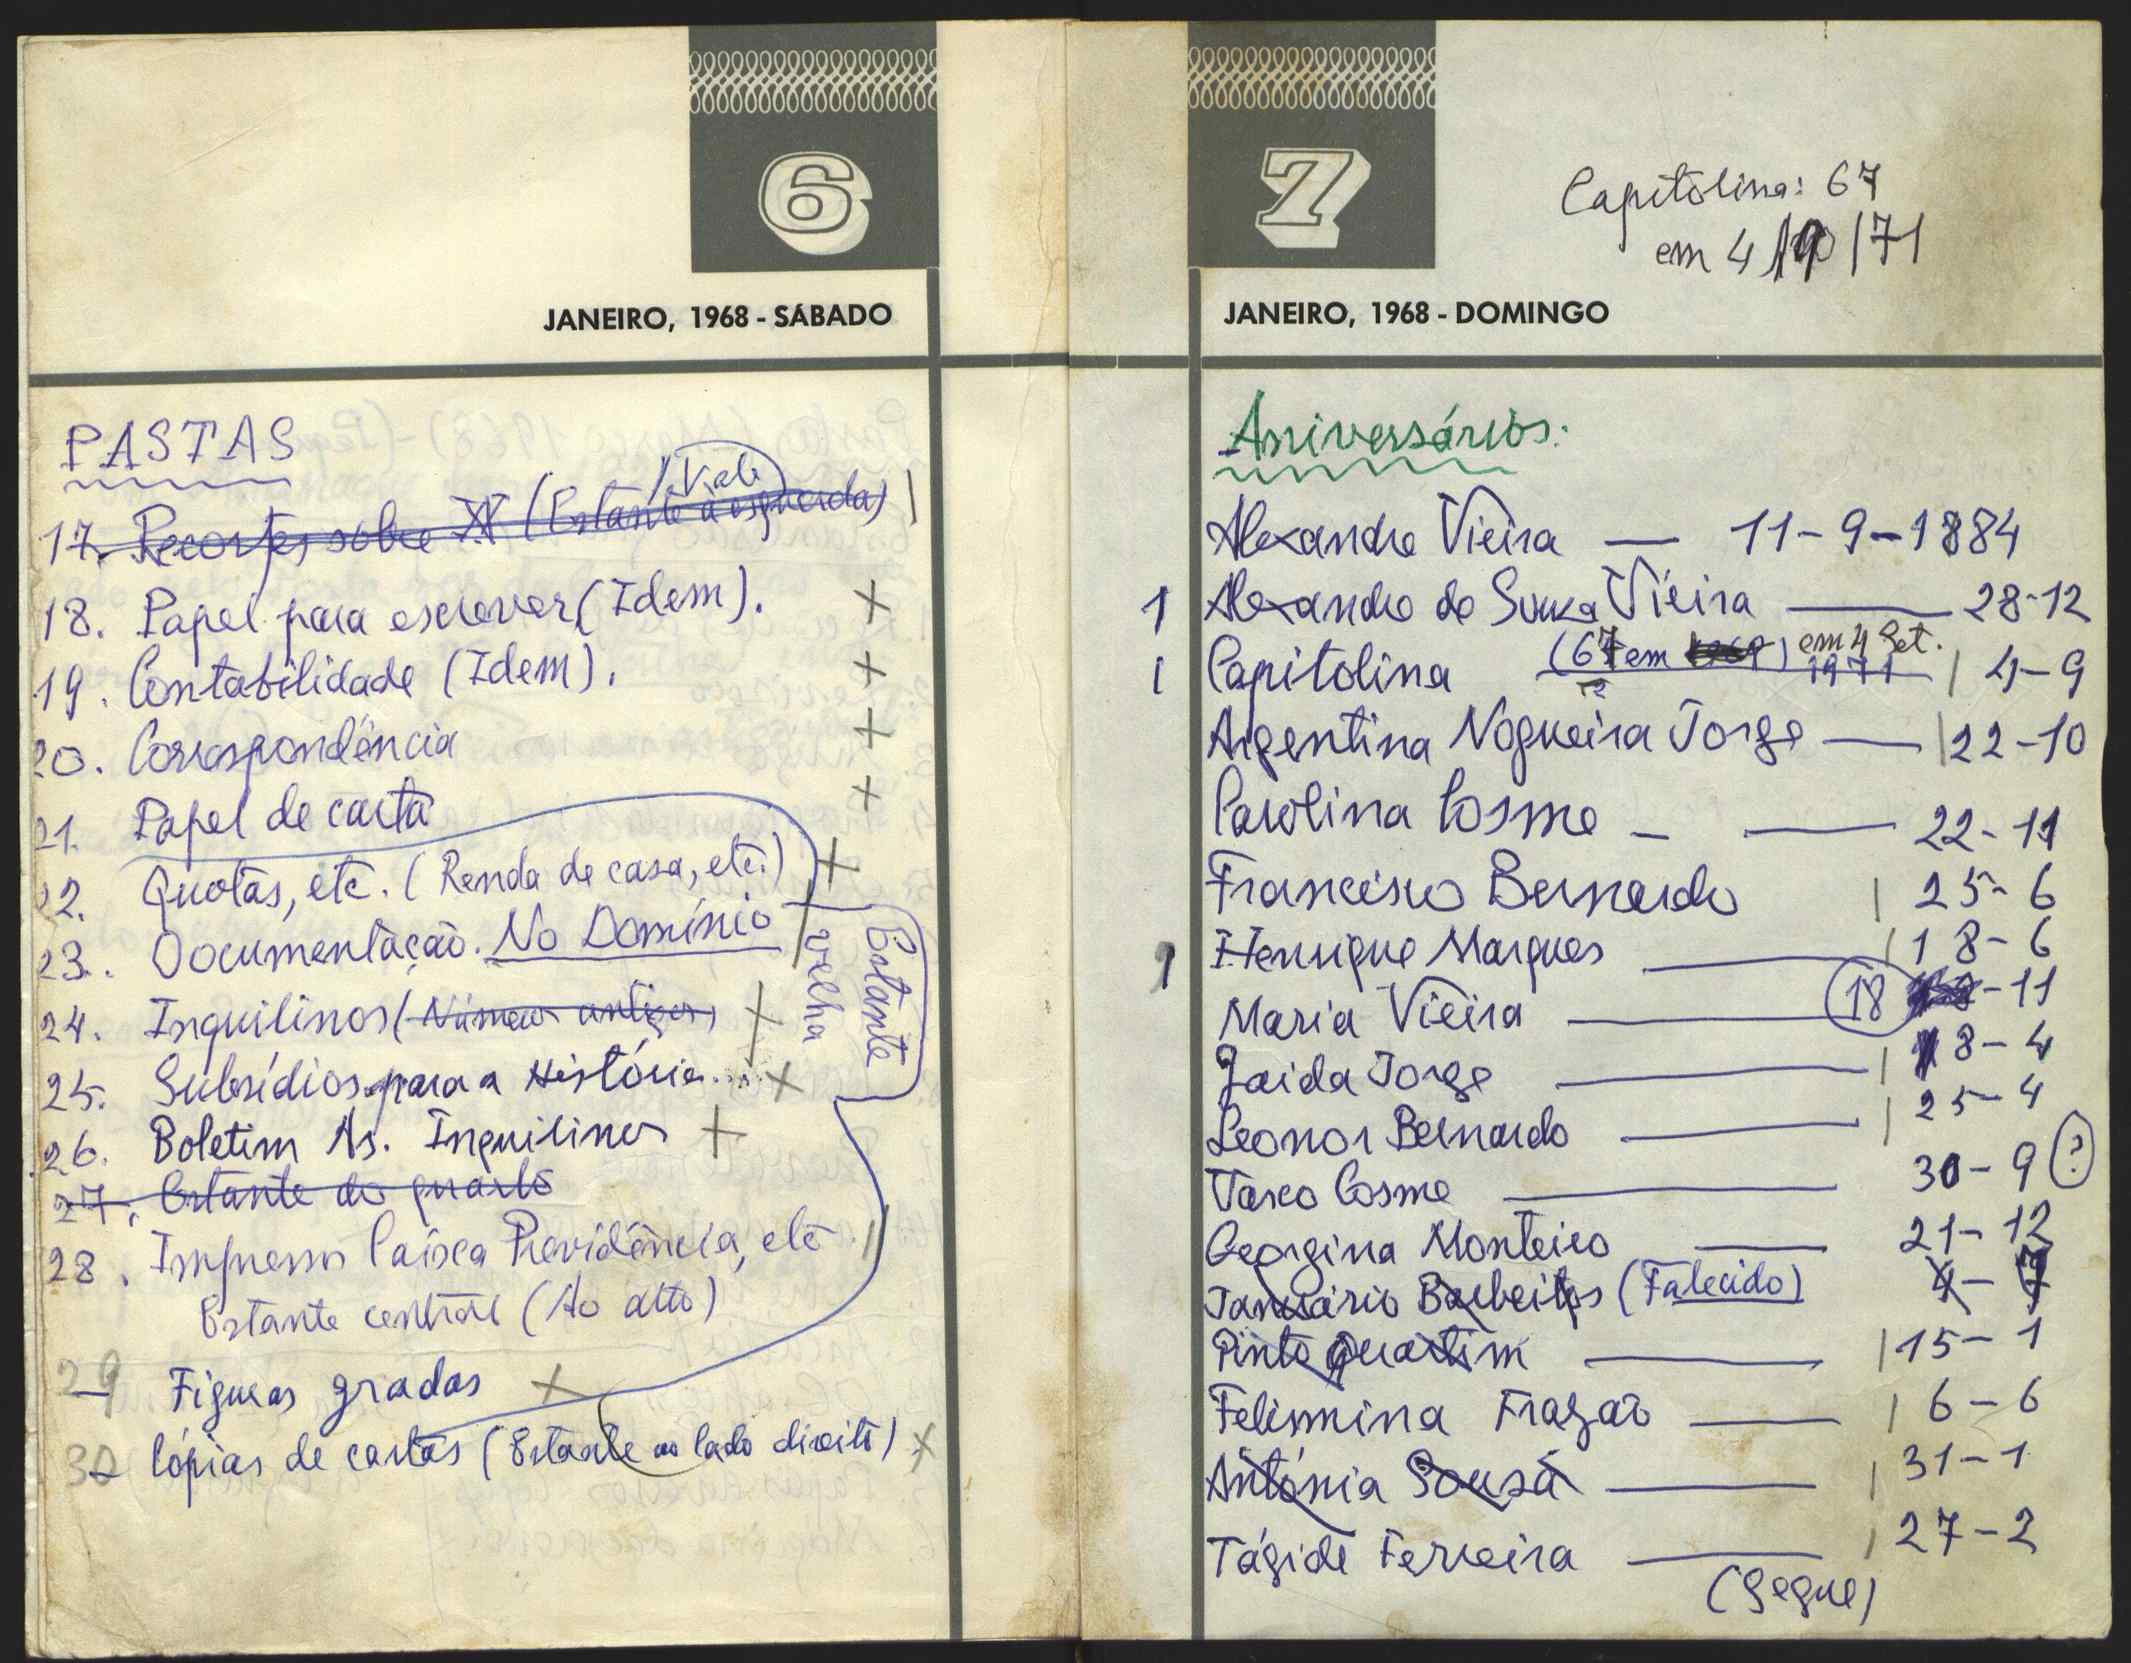 6
JANEIRO, 1968 - SÁBADO
PASTAS
Vale
17. Recortes sôbre (Estante à esquerda)
18. Papel para escrever (Idem).
19. Contabilidade (Idem).
20. Correspondência
21. Papel de carta
22. Quotas, etc. (Renda de casa, etc.)
23. Documentação. No Domínio
24. Inquilinos (Números antigos)
25. Subsídios para a História...
26. Boletim As. Inquilinos
27. Estante do quarto
28. Impressos Caixa Previdência, etc.
Estante central (Ao alto)
29 Figuras gradas
30 Cópias de cartas (Estante ao lado direito)
Estante
velha
7
Capitolina: 67
em 4 / 9 / 71
JANEIRO, 1968 - DOMINGO
Aniversários:
Alexandre Vieira — 11-9-1884
1 Alexandre de Sousa Vieira — 28-12
1 Capitolina (67 em 1969) em 4 Set. 1971 | 4-9
Argentina Nogueira Jorge — | 22-10
Carolina Cosme — 22-11
Francisco Bernardo | 25-6
1 Henrique Marques — | 18-6
Maria Vieira — 18 -11
Zaida Jorge — | 8-4
Leonor Bernardo — | 25-4
Vasco Cosme — 30-9 (?)
Georgina Monteiro — 21-12
Januário Barbeitos (Falecido) 4-7
Pinto Quartim — | 15-1
Felismina Frazão — | 6-6
Antónia Sousa — | 31-1
Tágide Ferreira — | 27-2
(Segue)